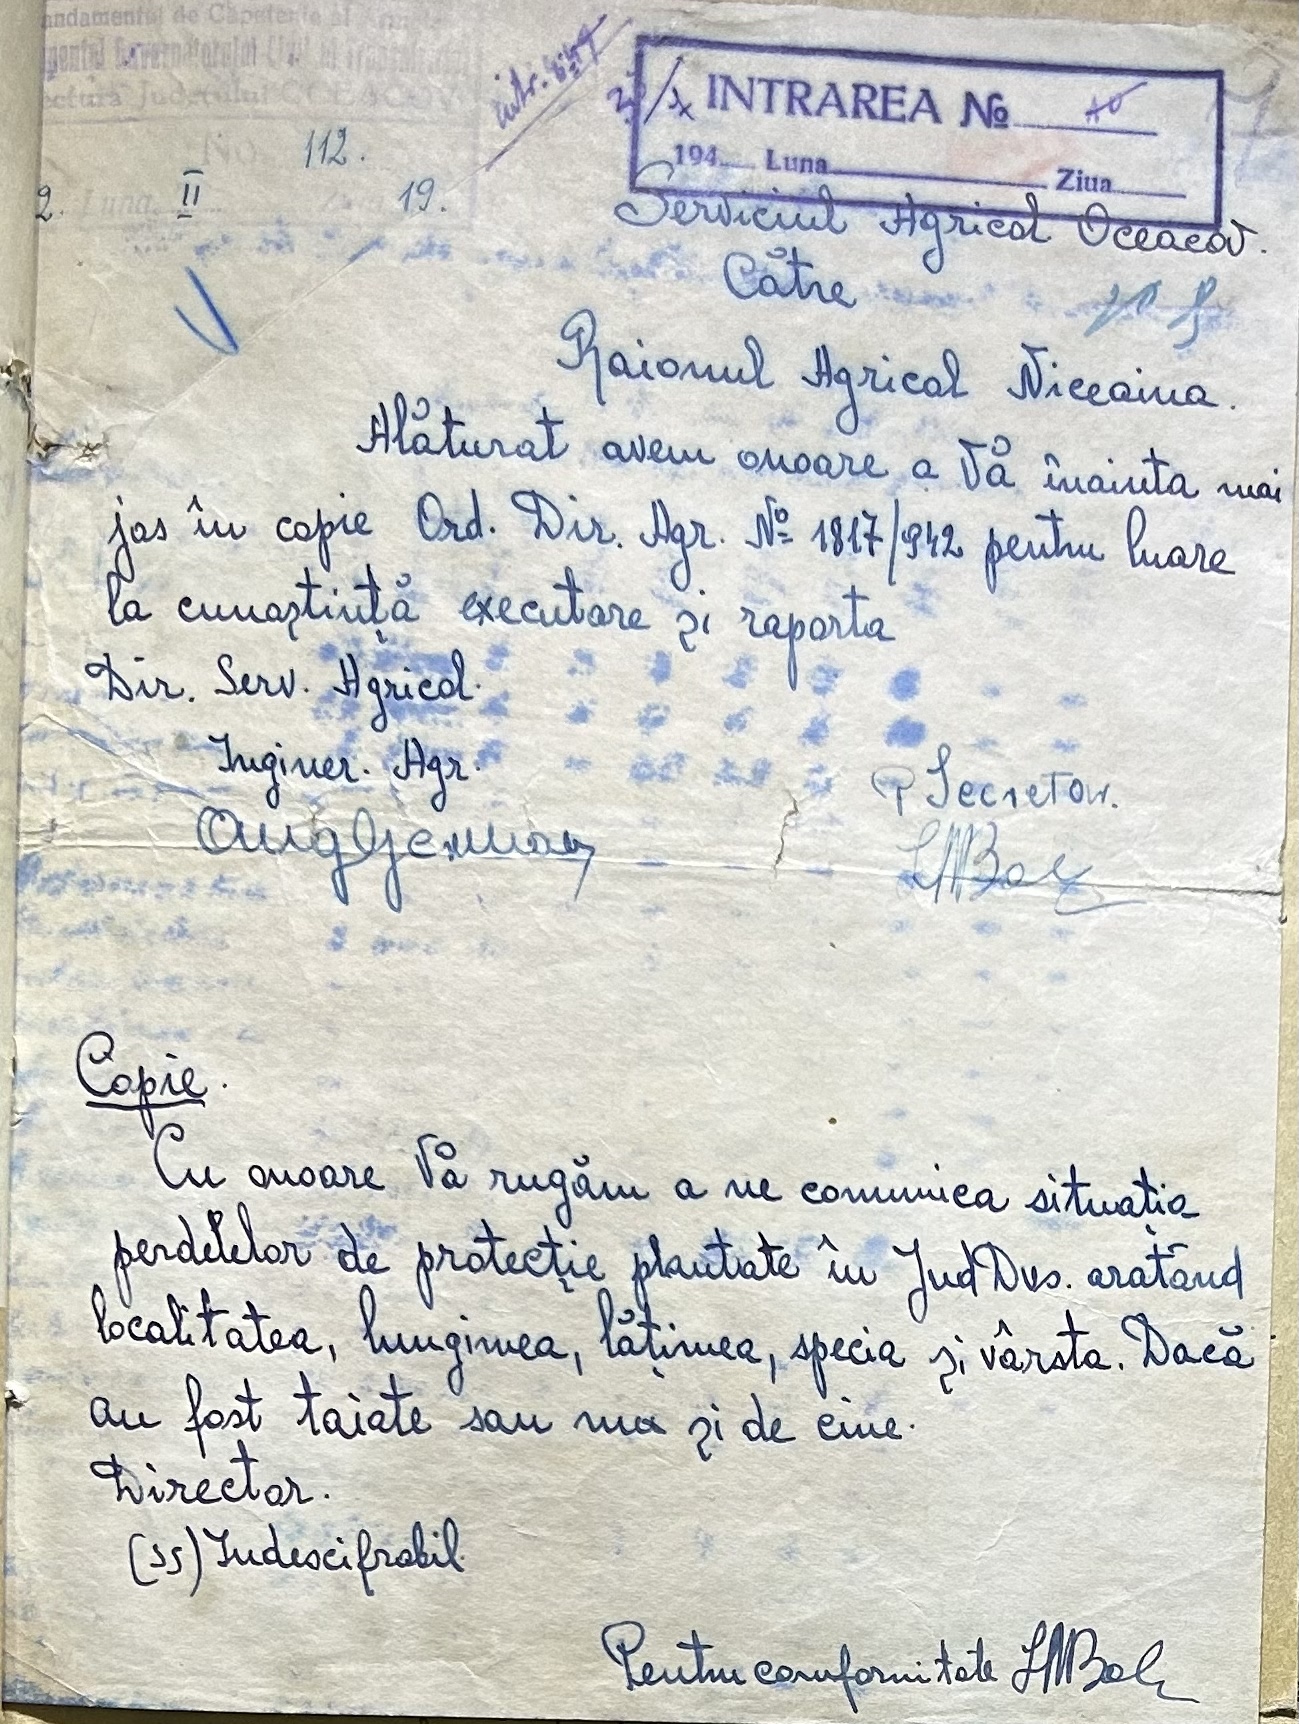 andamentul de Capetenie al Armatei
ectura Judetului OCEACOV
No. 112.
2. Luna II 19.
intr.
INTRAREA №
194 Luna Ziua
Serviciul Agricol Oceacov.
Către
Raionul Agricol Niceaina.
Alăturat avem onoare a Vă înainta mai
jos în copie Ord. Dir. Agr. № 1817/942 pentru luare
la cunoștință executare și raporta
Dir. Serv. Agricol.
Inginer. Agr.
p Secretar.
Copie.
Cu onoare Vă rugăm a ne comunica situația
perdelelor de protecție plantate în Jud Dvs. arătând
localitatea, lungimea, lățimea, specia și vârsta. Dacă
au fost taiate sau nu și de cine.
Director.
(ss) Indescifrabil
Pentru comformitate